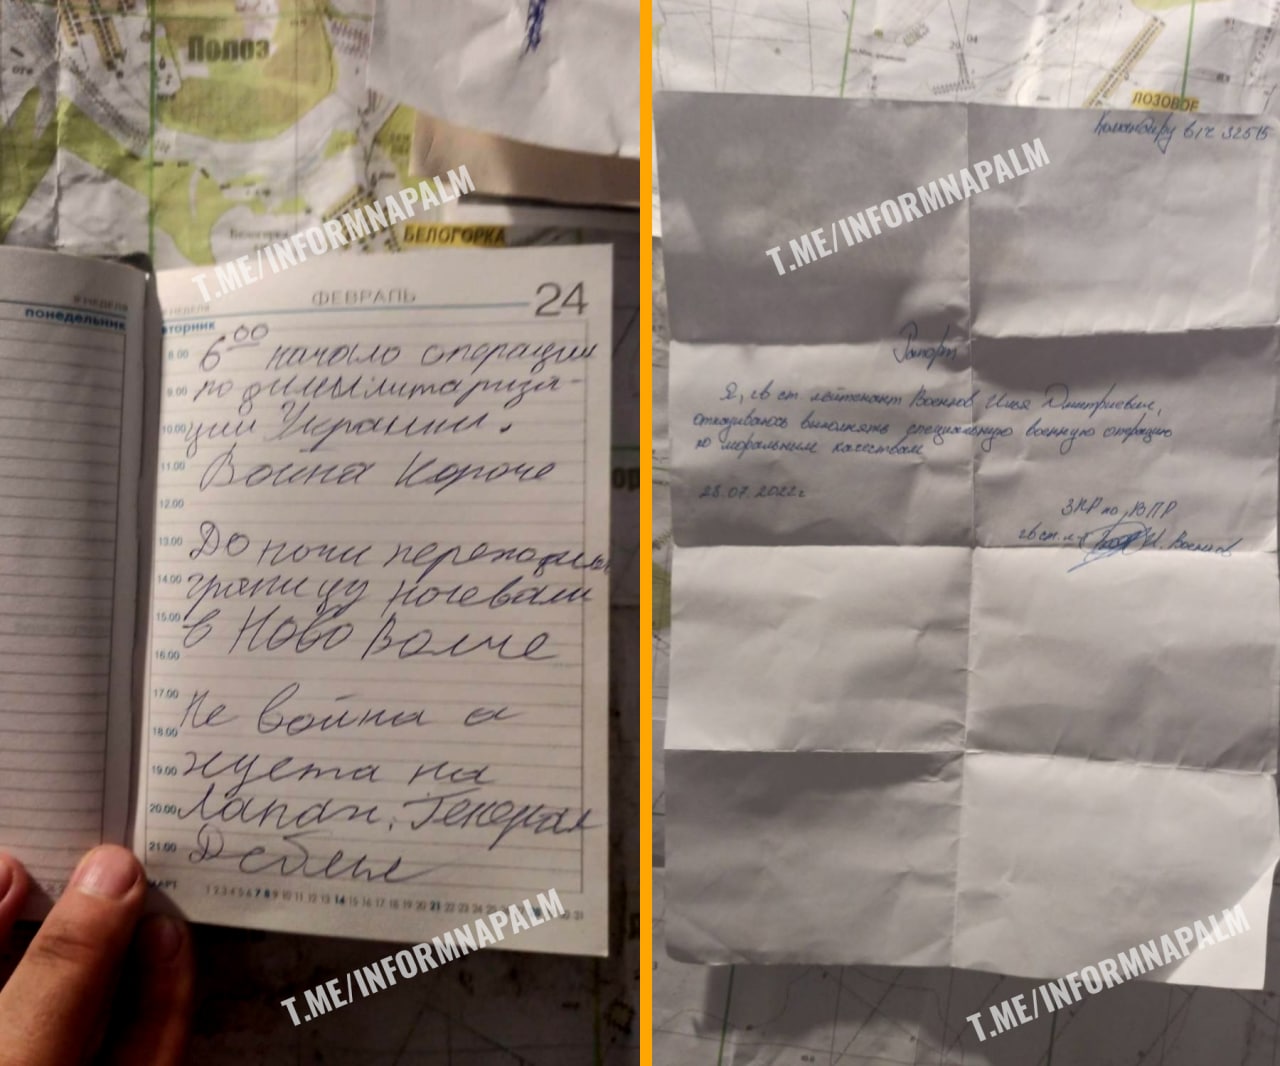 Попоз
T.ME/INFORMNAPALM
БЕЛОГОРКА
9 НЕДЕЛЯ
понедельник
НЕДЕЛЯ
ФЕВРАЛЬ
24
вторник
8.00
6 00 начало операции
9.00
по димылитариза-
10.00
ции Украины.
11.00
Война Короче
12.00
13.00
До ночи переходили
14.00
границу ночевали
15.00
в Ново Волче
16.00
17.00
Не война а
18.00
19.00
суета на
20.00
Лапах. Генерал
21.00
Дебил
МАРТ
1 2 3 4 5 6 7 8 9 10 11 12 13 14 15 16 17 18 19 20 21 22 23 24 25
T.ME/INFORMNAPALM
ЛОЗОВОЕ
Командиру в/ч 32515
T.ME/INFORMNAPALM
Рапорт
Я, гв ст. лейтенант Военнов Илья Дмитриевич,
отказываюсь выполнять специальную военную операцию
по моральным качествам
28.07.2022г
ЗКР по ВПР
гв ст. л-т И. Военнов
T.ME/INFORMNAPALM